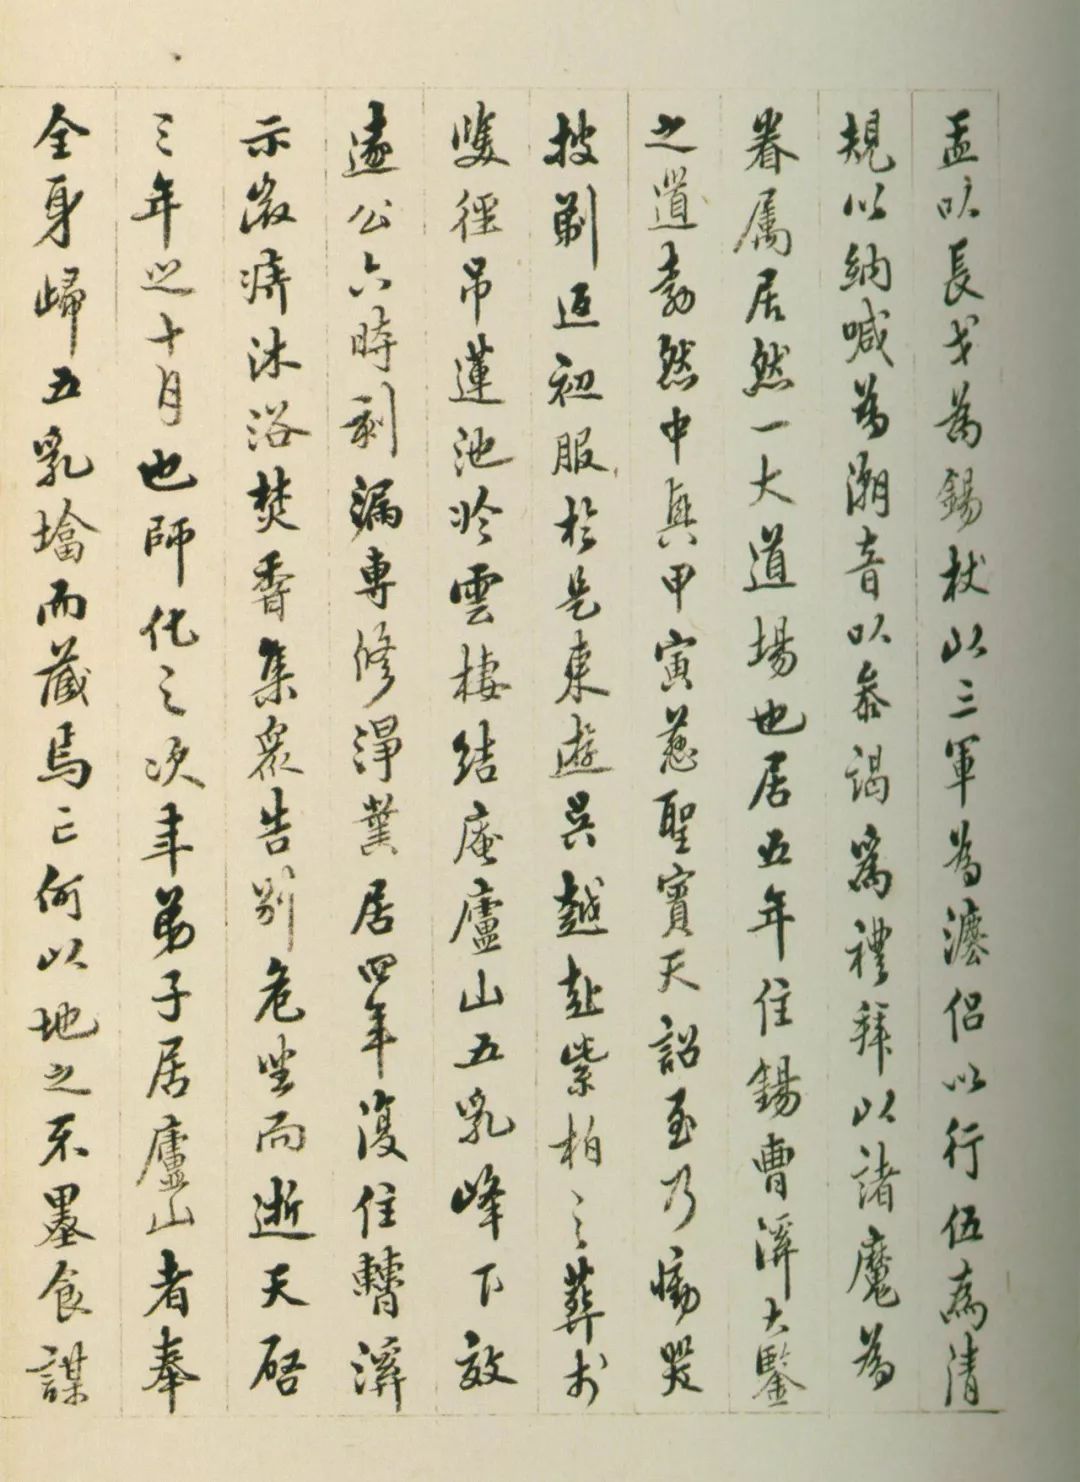 盂以長戈為錫杖以三軍為法侶以行伍為清
規以納喊為潮音以參謁為禮拜以諸魔為
眷属居然一大道場也居五年住錫曹溪大鑒
之道勃然中興甲寅慈聖賓天詔至乃慟哭
披剃返初服於是東遊吳越赴紫柏之葬於
雙徑吊蓮池於雲棲結庵廬山五乳峰下效
遠公六時刻漏專修淨業居四年復住曹溪
示微疾沐浴焚香集衆告別危坐而逝天啓
三年之十月也師化之次年弟子居廬山者奉
全身歸五乳塔而藏焉亡何以地之不墨食謀